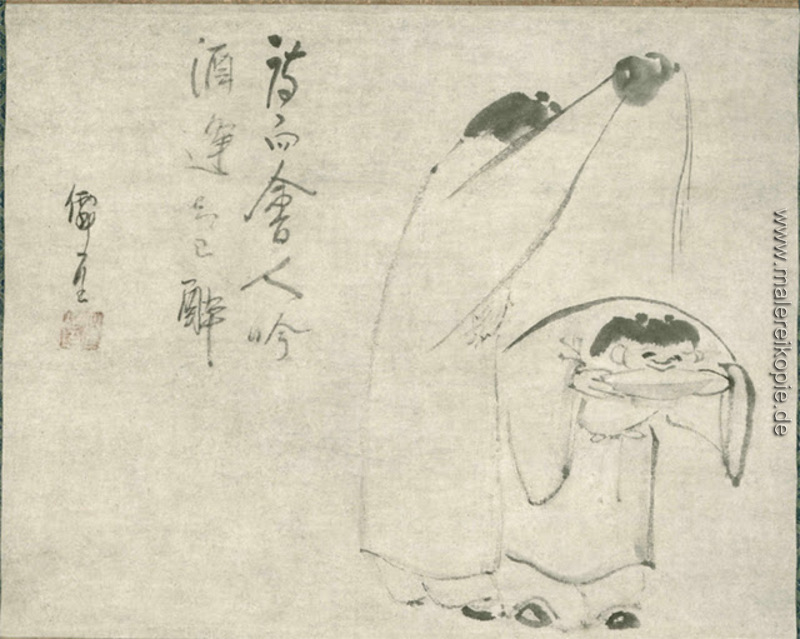 詩向會人吟
酒逢知己醉
僊厓
www.malereikopie.de